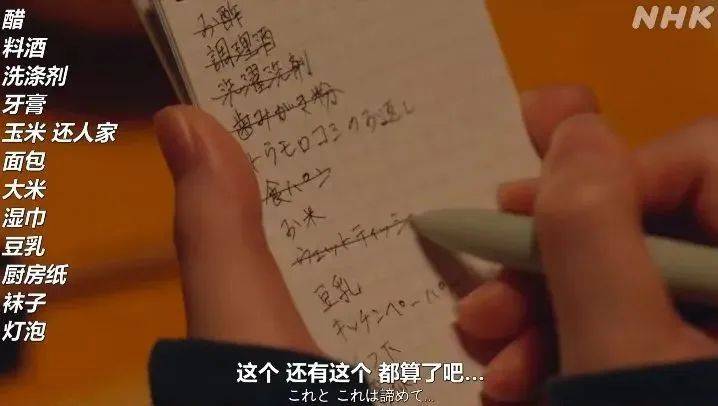 NHK
醋
料酒
洗涤剂
牙膏
玉米 还人家
面包
大米
湿巾
豆乳
厨房纸
袜子
灯泡
お酢
調理酒
洗濯洗剤
歯みがき粉
トウモロコシのお返し
食パン
お米
ウェットティッシュ
豆乳
キッチンペーパー
这个 还有这个 都算了吧...
これと これは諦めて...